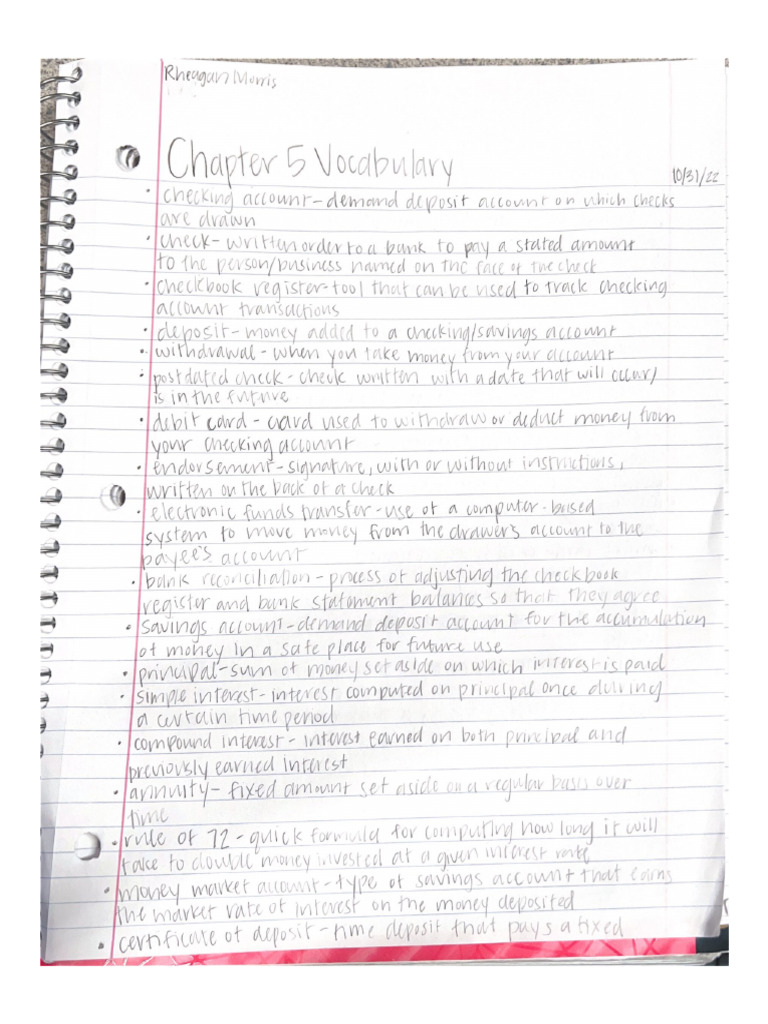 Rheagan Morris
Chapter 5 Vocabulary
10/31/22
• checking account - demand deposit account on which checks
are drawn
• check - written order to a bank to pay a stated amount
to the person/business named on the face of the check
• checkbook register - tool that can be used to track checking
account transactions
• deposit - money added to a checking/savings account
• withdrawal - when you take money from your account
• postdated check - check written with a date that will occur/
is in the future
• debit card - card used to withdraw or deduct money from
your checking account
• endorsement - signature, with or without instructions,
written on the back of a check
• electronic funds transfer - use of a computer-based
system to move money from the drawer's account to the
payee's account
• bank reconciliation - process of adjusting the checkbook
register and bank statement balances so that they agree
• savings account - demand deposit account for the accumulation
of money in a safe place for future use
• principal - sum of money set aside on which interest is paid
• simple interest - interest computed on principal once during
a certain time period
• compound interest - interest earned on both principal and
previously earned interest
• annuity - fixed amount set aside on a regular basis over
time
• rule of 72 - quick formula for computing how long it will
take to double money invested at a given interest rate
• money market account - type of savings account that earns
the market rate of interest on the money deposited
• certificate of deposit - time deposit that pays a fixed